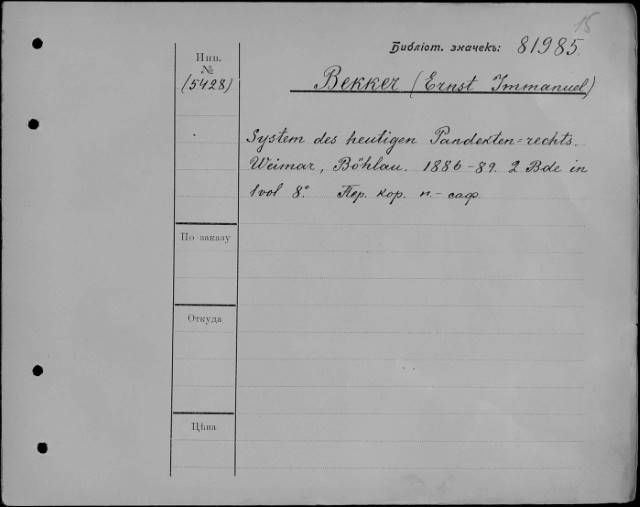 15
Библіот. значекъ: 81985
Инв.
№
(5428)
Bekker (Ernst Immanuel)
System des heutigen Pandekten=rechts.
Weimar, Böhlau. 1886-89. 2 Bde in
1 vol 8°. Пер. кор. п.- саф.
По заказу
Откуда
Цѣна